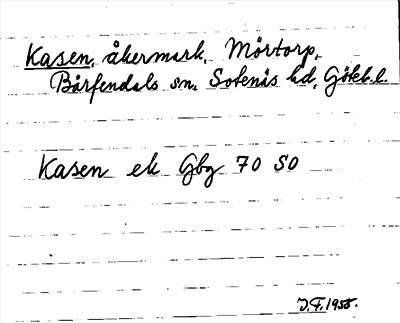 Kasen, åkermark, Mörtorp,
Bärfendals sn, Sotenäs hd, Gökb.l.
Kasen ek Gbg 70 SO
J.F. 1955.